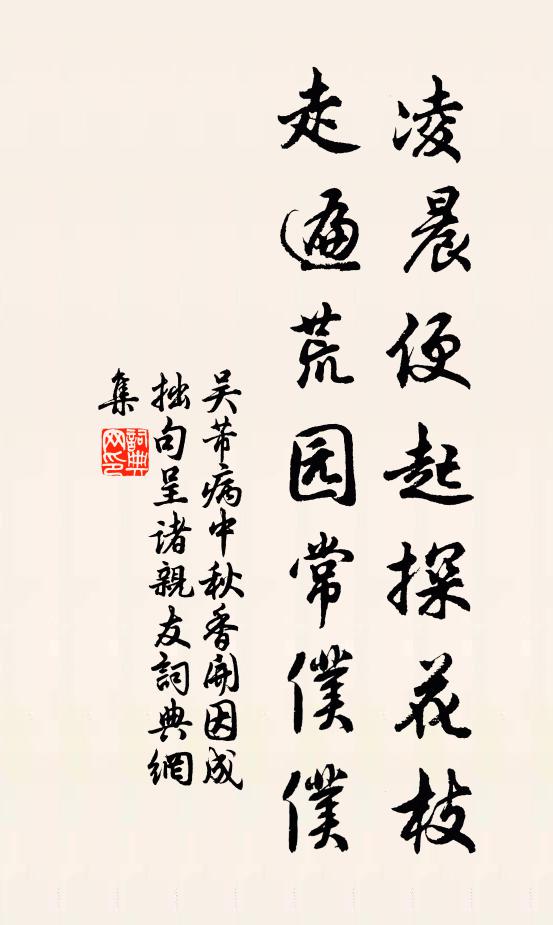 凌晨便起探花枝
走遍荒园常僕僕
吴芾病中秋香開因成
拙句呈诸親友詞典網
集
詞典網印